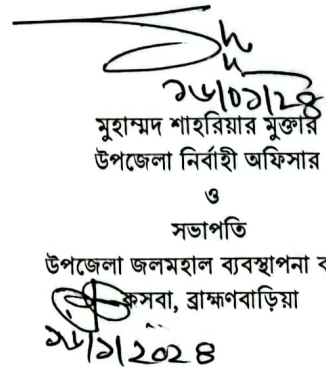 ১৮/০১/২৪
মুহাম্মদ শাহরিয়ার মুক্তার
উপজেলা নির্বাহী অফিসার
ও
সভাপতি
উপজেলা জলমহাল ব্যবস্থাপনা ক
কসবা, ব্রাহ্মণবাড়িয়া
১৮/১/২০২৪